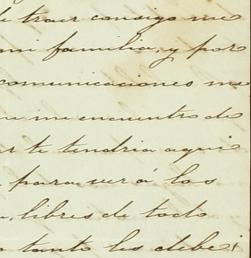 traer consigo me
mi familia, y por
comunicaciones me
me encuentro de
te tendria aqui
para ver á los
libres de todo
tanto les debe;